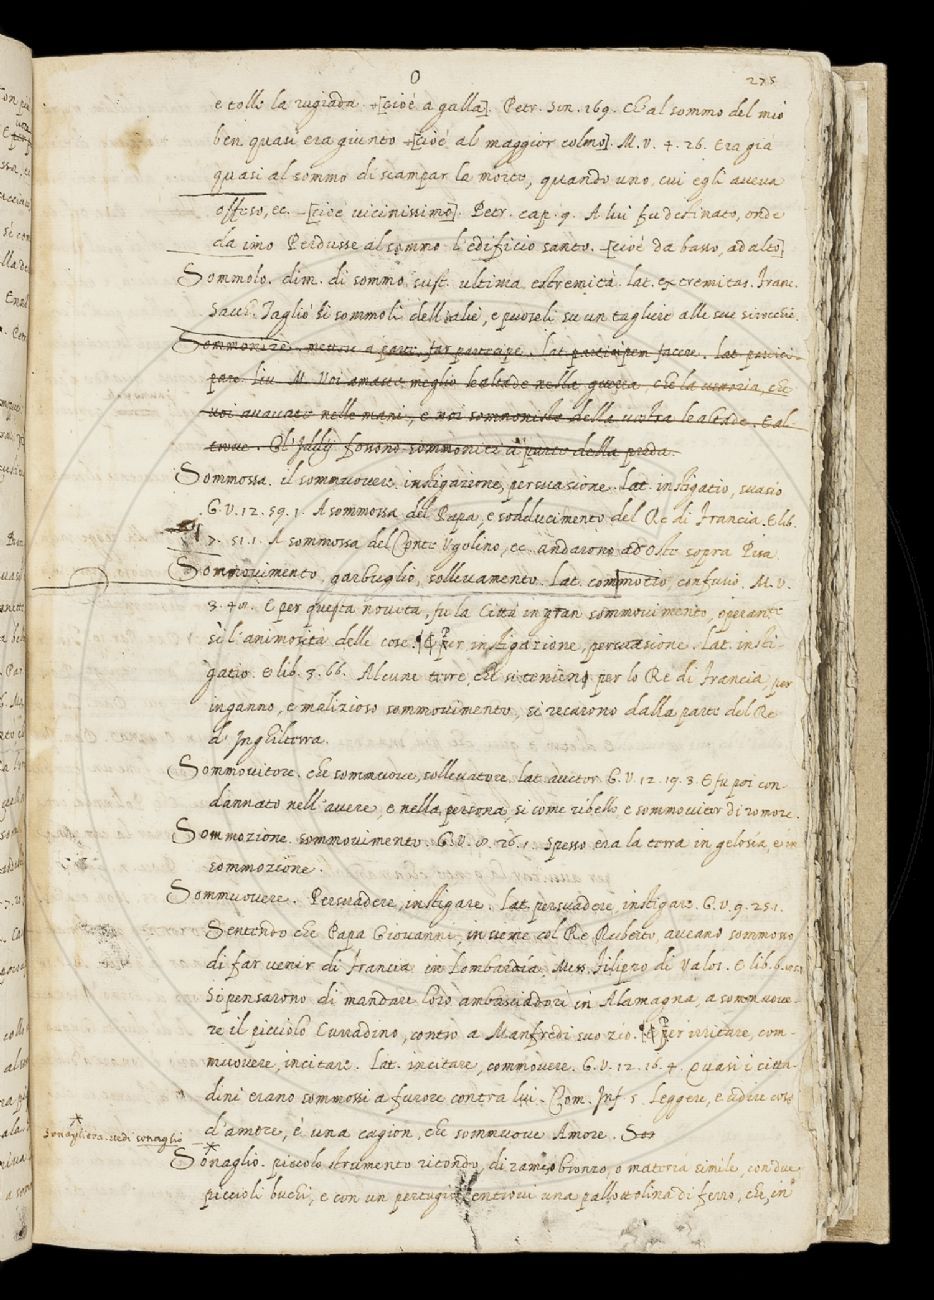 O 275
e tolle la rugiada. +[cioè a galla]. Petr. Son. 169. Ch'al sommo del mio
ben quasi era giunto +[cioè al maggior colmo]. M. V. 4. 26. Era già
quasi al sommo di scampar la morte, quando uno, cui egli aveva
offeso, ec. -[cioè vicinissimo]. Petr. cap. 9. A lui fu destinato, onde
da imo Perdusse al sommo l'edificio santo. -[cioè da basso, ad alto]
Sommolo. dim. di sommo, sust. ultima estremità. lat. extremitas. Franc.
Sacch. Tagliò li sommoli dell'alie, e puoseli su un tagliere alle sue sirocchie.
Sommonire. mettere a parte, far partecipe. lat. participem facere. lat. partici-
pare. Liv. M. Voi amaste meglio lealtade nella guerra, che la vittoria, che
voi avavate nelle mani, e noi sommoniste della vostra lealtade. E al-
trove. Gl'Iddij fossono sommoniti a parte della preda.
Sommossa. il sommuovere, instigazione, persuasione. lat. instigatio, suasio
G. V. 12. 59. 1. A sommossa del Papa, e sodducimento del Re di Francia. E lib.
7. 51. 1. A sommossa del Conte Ugolino, ec. andarono ad oste sopra Pisa.
Sommovimento, garbuglio, sollevamento. Lat. commotio, confusio. M. V.
8. 40. E per questa novità, fu la Città in gran sommovimento, operante
sì l'animosità delle cose. Per instigazione, persuasione. lat. insti-
gatio. E lib. 3. 66. Alcune terre, che si tenieno per lo Re di Francia per
inganno, e malizioso sommovimento, si recarono dalla parte del Re
d'Inghilterra.
Sommovitore. che sommuove, sollevatore. lat. auctor. G. V. 12. 19. 3. E fu poi con
dannato nell'avere, e nella persona, sì come ribello, e sommovitor di romore.
Sommozione. sommovimento. G. V. 8. 26. 1. Spesso era la terra in gelosia, e in
sommozione.
Sommuovere. Persuadere, instigare. lat. persuadere, instigare. G. V. 9. 251.
Sentendo che Papa Giovanni, insieme col Re Ruberto, aveano sommosso
di far venir di Francia in Lombardia, Mess. Filippo di Valos. E lib. 6.
Si pensarono di mandare loro ambasciadori in Alamagna, a sommuove-
re il piccolo Curradino, contro a Manfredi suo zio. Per irritare, com-
muovere, incitare. lat. incitare, commovere. G. V. 12. 16. 4. Quasi i citta-
dini erano sommossi a furore contra lui. Com. Inf. 5. Leggere, e udire cose
d'amore, è una cagion, che sommuove Amore. Son
Sonagliera. vedi sonaglio
Sonaglio. piccolo strumento ritondo, di rame, o bronzo, o materia simile, con due
piccioli buchi, e con un pertugio entrovi una pallottolina di ferro, che, in